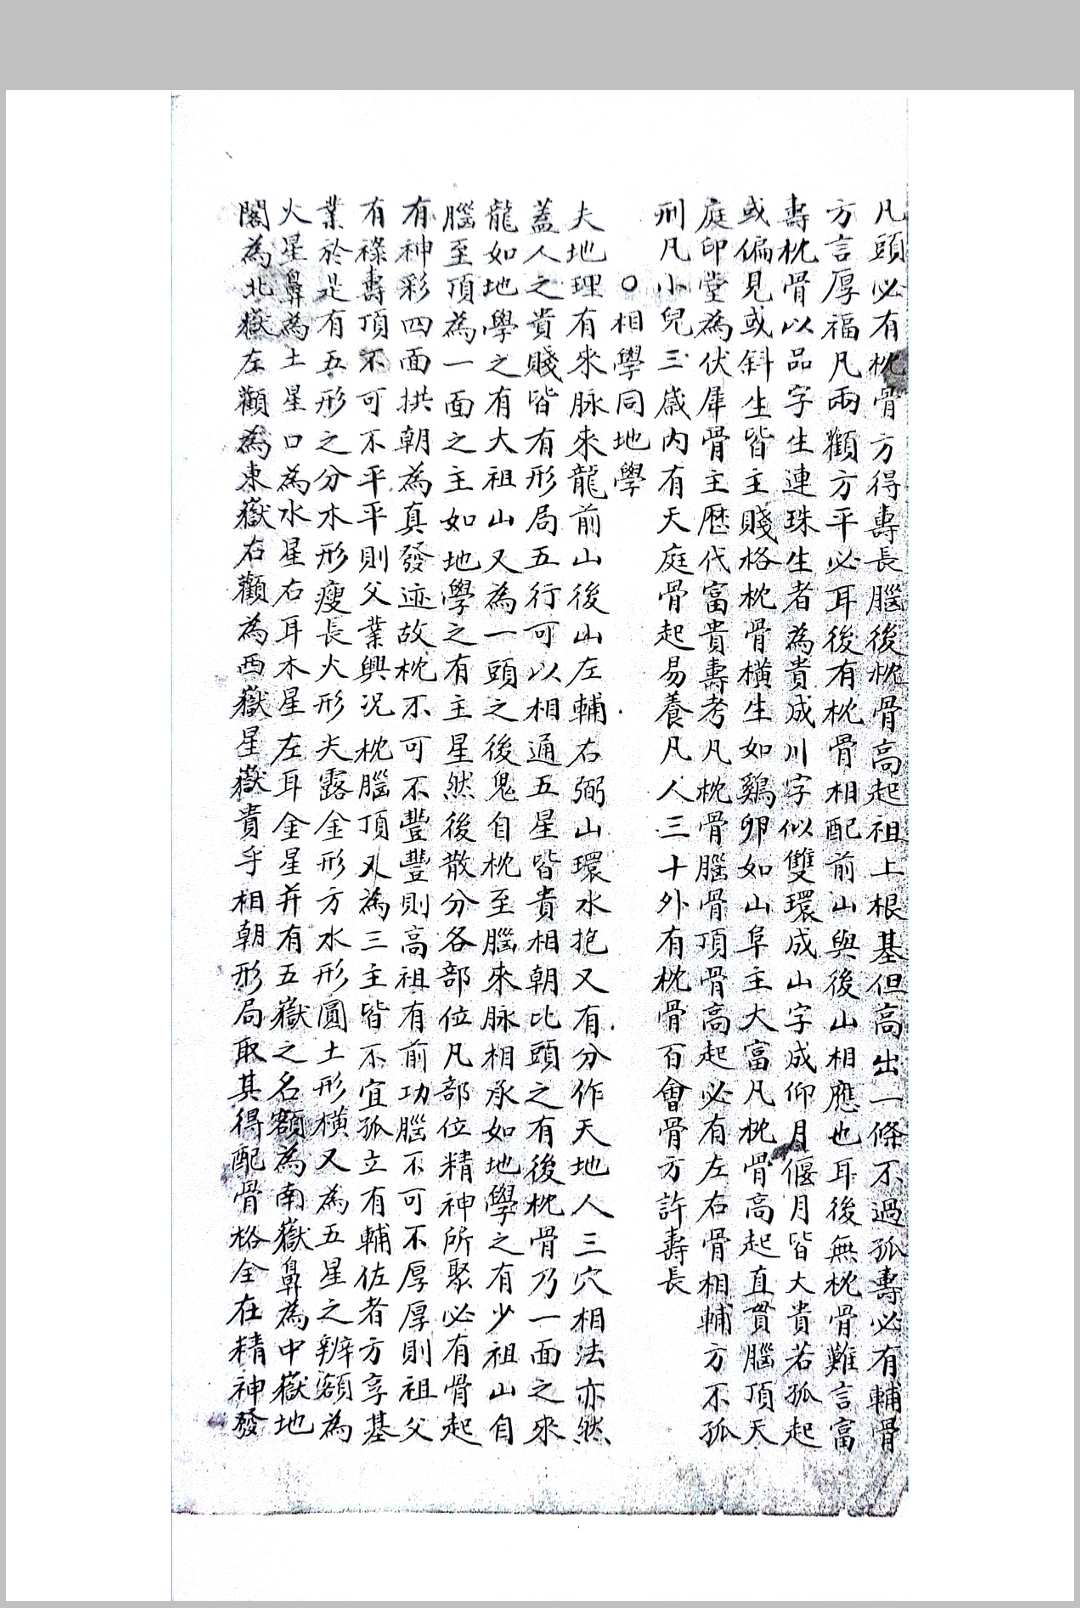 凡頭必有枕骨方得壽長腦後枕骨高起祖上根基但高出一條不過孤壽必有輔骨
方言厚福凡兩顴方平必耳後有枕骨相配前山與後山相應也耳後無枕骨難言富
壽枕骨以品字生連珠生者為貴成川字似雙環成山字成仰月偃月皆大貴若孤起
或偏見或斜生皆主賤格枕骨橫生如鷄卵如山阜主大富凡枕骨高起直貫腦頂天
庭印堂為伏犀骨主歷代富貴壽考凡枕骨腦骨頂骨高起必有左右骨相輔方不孤
刑凡小兒三歲內有天庭骨起易養凡人三十外有枕骨百會骨方許壽長
○相學同地學
夫地理有來脉來龍前山後山左輔右弼山環水抱又有分作天地人三穴相法亦然
蓋人之貴賤皆有形局五行可以相通五星皆貴相朝比頭之有後枕骨乃一面之來
龍如地學之有大祖山又為一頭之後鬼自枕至腦來脉相承如地學之有少祖山自
腦至頂為一面之主如地學之有主星然後散分各部位凡部位精神所聚必有骨起
有神彩四面拱朝為真發迹故枕不可不豐豐則高祖有前功腦不可不厚厚則祖父
有祿壽頂不可不平平則父業興況枕腦頂又為三主皆不宜孤立有輔佐者方享基
業於是有五形之分木形瘦長火形尖露金形方水形圓土形橫又為五星之辨額為
火星鼻為土星口為水星右耳木星左耳金星并有五嶽之名額為南嶽鼻為中嶽地
閣為北嶽左顴為東嶽右顴為西嶽星嶽貴乎相朝形局取其得配骨格全在精神發